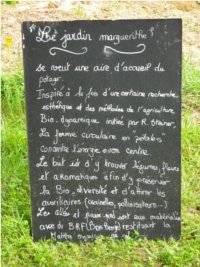 "Le jardin marguerithe"!
Se veut une aire d'accueil du
potager.
Inspiré à la fois d'une certaine recherche
esthétique et des méthodes de l'agriculture
Bio. dynamique initiée par R. Steiner.
La forme circulaire en "pétales"
concentre l'énergie en son centre.
Le but est d'y trouver légumes, fleurs
et aromatiques afin d'y préserver
la Bio. diversité et d'attirer les
auxiliaires (coccinelles, pollinisateurs...)
Les allées et paux sont aux matériaux
avec du BRF (Bois Broyé) restituant la
Matière